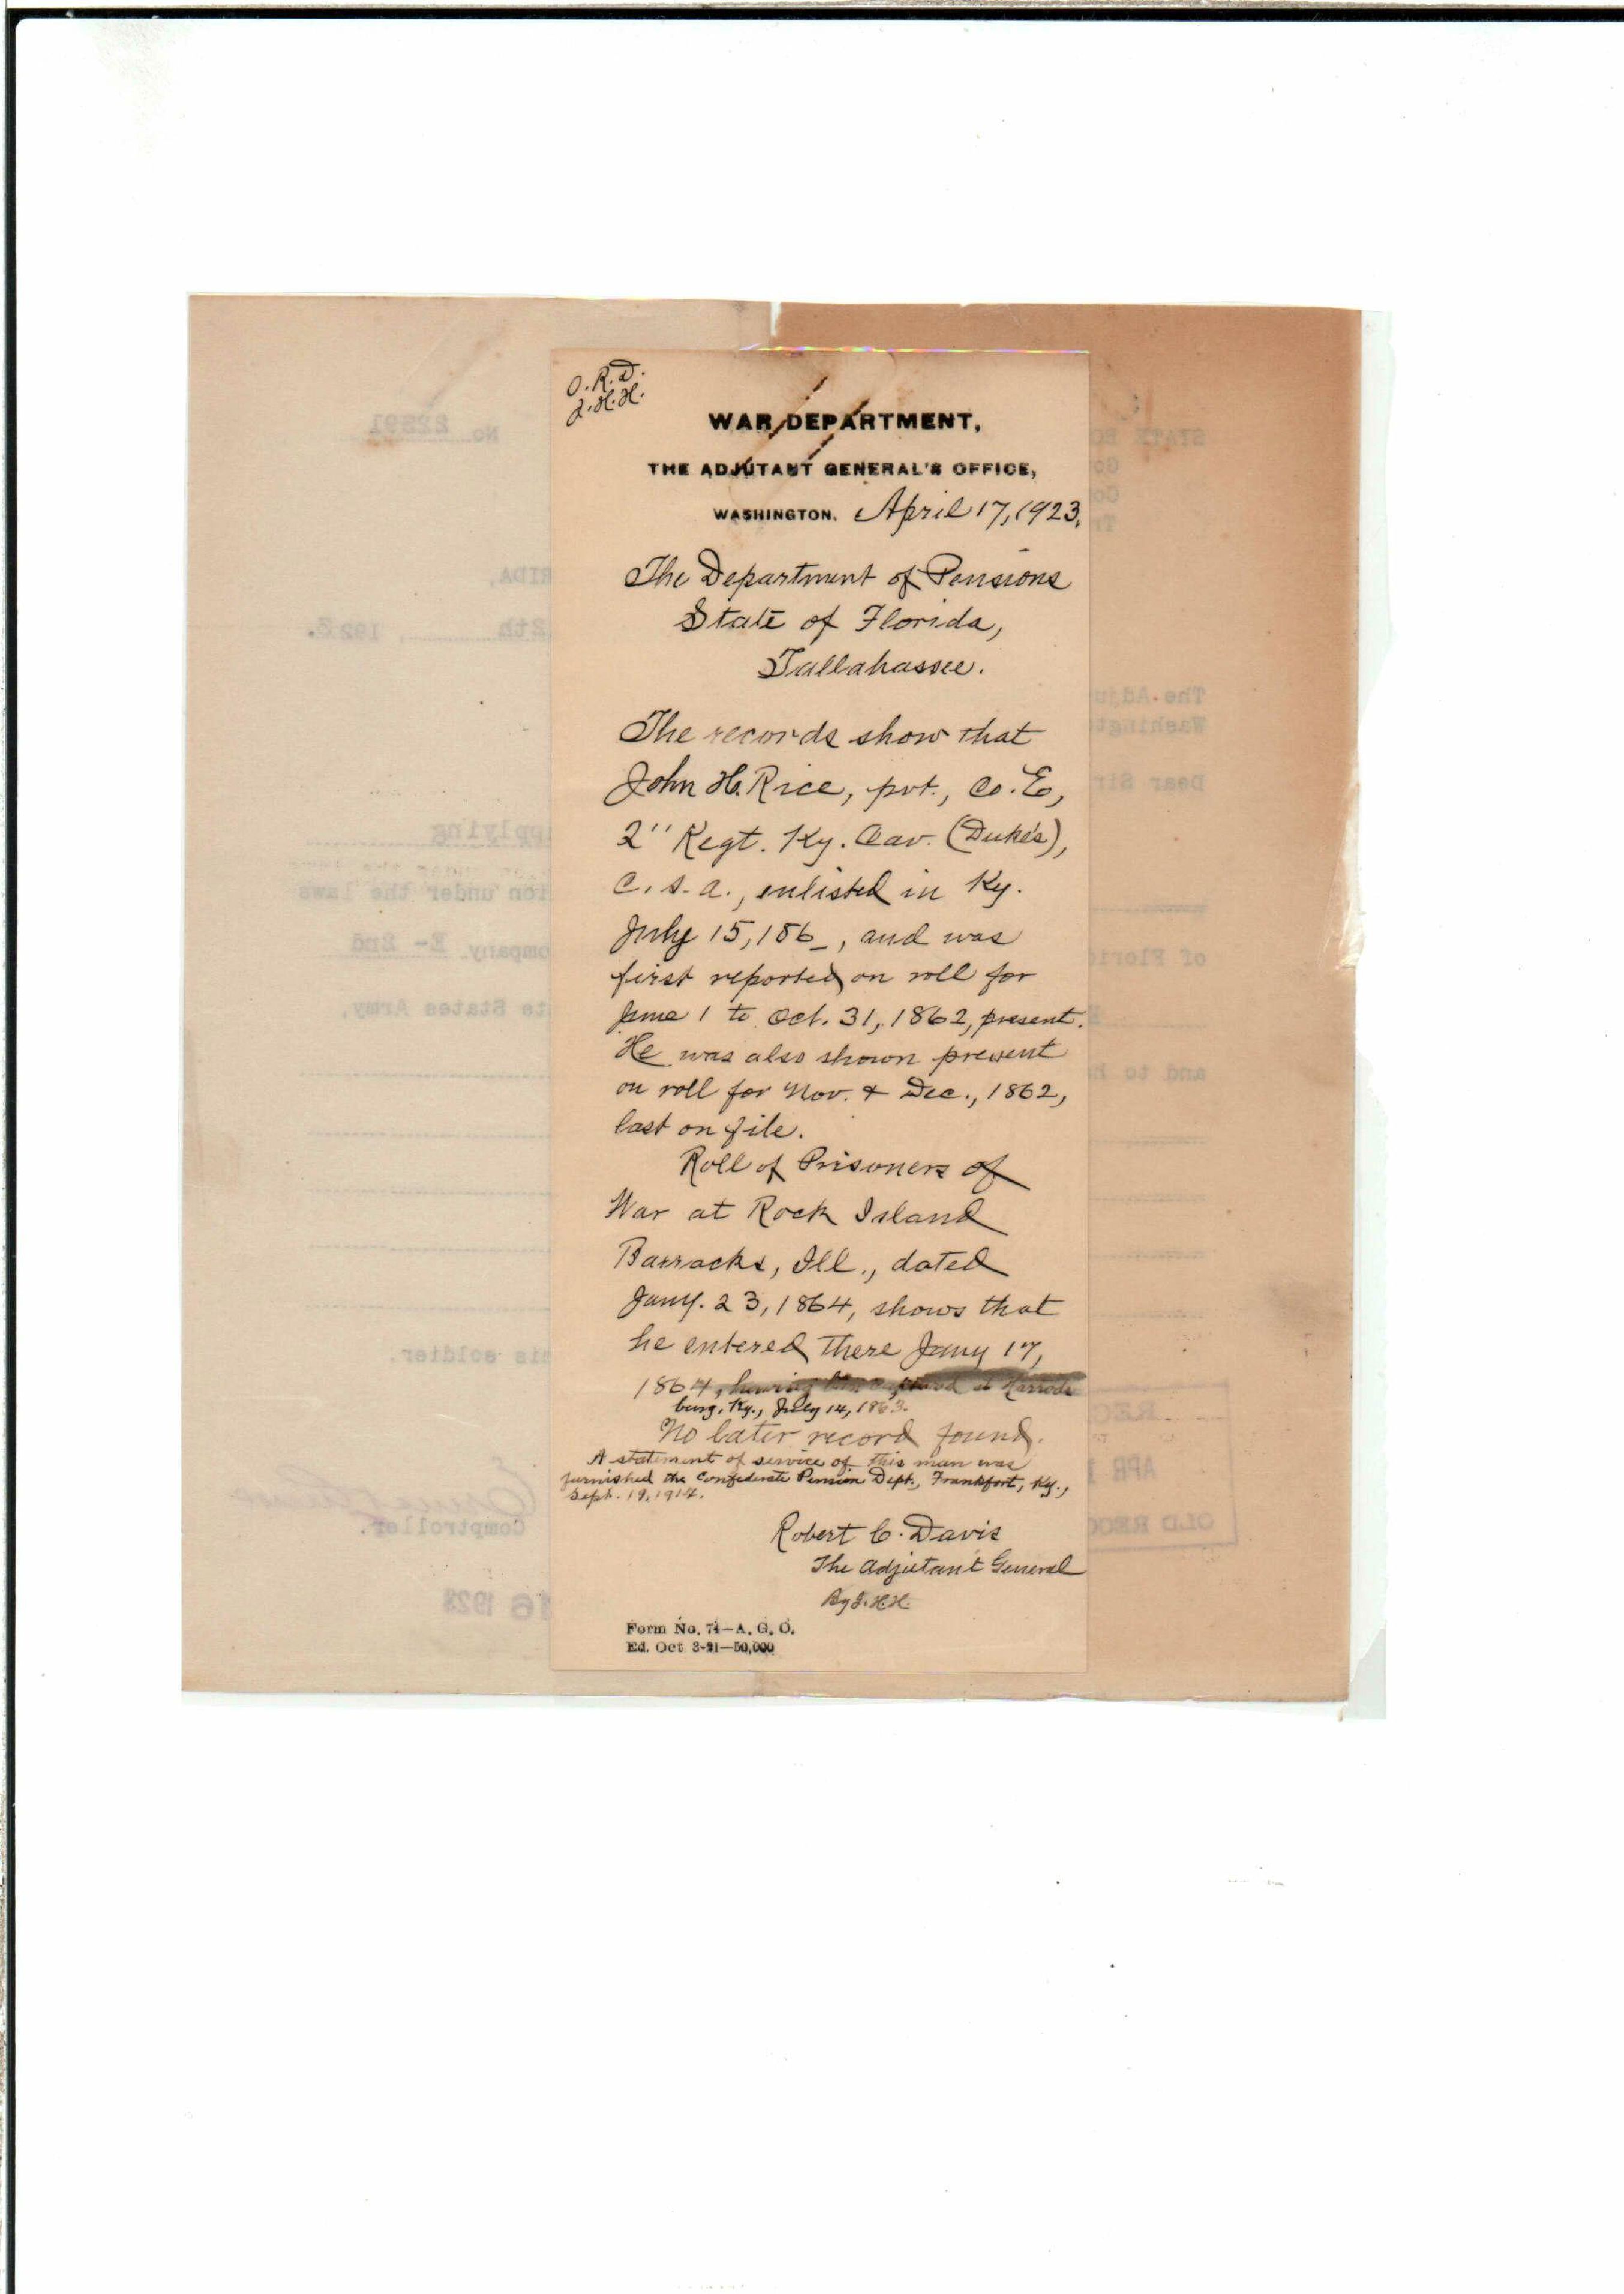 O.R.D.
J.H.H.
WAR DEPARTMENT,
THE ADJUTANT GENERAL'S OFFICE,
WASHINGTON. April 17, 1923.
The Department of Pensions
State of Florida,
Tallahassee.
The records show that
John H. Rice, pvt., Co. E,
2" Regt. Ky. Cav. (Duke's),
C. S. A., enlisted in Ky.
July 15, 186_, and was
first reported on roll for
June 1 to Oct. 31, 1862, present.
He was also shown present
on roll for Nov. & Dec., 1862,
last on file.
Roll of Prisoners of
War at Rock Island
Barracks, Ill., dated
Jany. 23, 1864, shows that
he entered there Jany 17,
1864, having been captured at Harrods
burg, Ky., July 14, 1863.
No later record found.
A statement of service of this man was
furnished the Confederate Pension Dept., Frankfort, Ky.,
Sept. 19, 1914.
Robert C. Davis
The Adjutant General
By J.H.H.
Form No. 74—A. G. O.
Ed. Oct 3-21—50,000
No. 22891
RIDA,
2th , 1923.
pplying
ion under the laws
ompany E- 2nd
te States Army,
is soldier.
Comptroller.
16 1923
STATE BO
The Adju
Washingt
Dear Sir
of Flori
and to h
REC
APR 1
OLD RECO